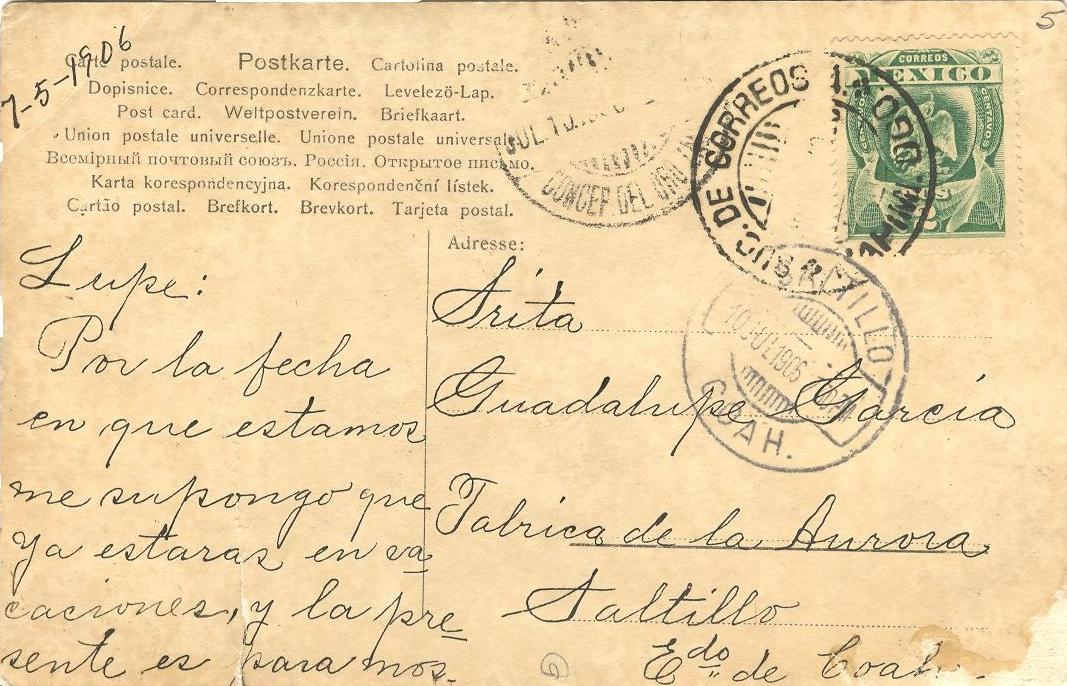 7-5-1906
5
Carte postale. Postkarte. Cartolina postale.
Dopisnice. Correspondenzkarte. Levelezö-Lap.
Post card. Weltpostverein. Briefkaart.
Union postale universelle. Unione postale universale.
Всемірный почтовый союзъ. Россія. Открытое письмо.
Karta korespondencyjna. Korespondenční lístek.
Cartão postal. Brefkort. Brevkort. Tarjeta postal.
JUL 10
CONCEP. DEL ORO
SUC. DE CORREOS
MAPIMI. DGO.
CORREOS
MEXICO
CENTAVOS
SALTILLO
10 JUL 1906
COAH.
Lupe:
Por la fecha
en que estamos
me supongo que
ya estaras en va-
caciones, y la pre-
sente es para mos-
Adresse:
Srita
Guadalupe Garcia
Fabrica de la Aurora
Saltillo
Edo. de Coah.